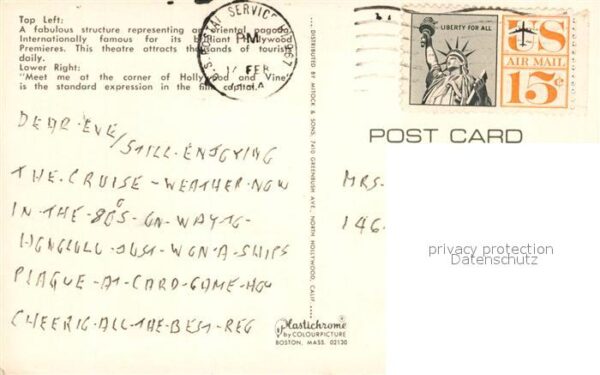 Top Left:
A fabulous structure representing an oriental pagoda.
Internationally famous for its brilliant Hollywood
Premieres. This theatre attracts thousands of tourists
daily.
Lower Right:
"Meet me at the corner of Hollywood and Vine"
is the standard expression in the film capital.
U.S. POSTAL SERVICE
PM
FEB
LIBERTY FOR ALL
US
AIR MAIL
15c
POST CARD
DEAR EVE/STILL ENJOYING
THE-CRUISE-WEATHER-NOW
IN-THE-80S-ON-WAY-TO-
HONOLULU-JUST-WON-A-SHIPS
PLAQUE-AT-CARD-GAME-HOW
CHEERIO-ALL-THE-BEST-REG
MRS-
146-
privacy protection
Datenschutz
DISTRIBUTED BY MITOCK & SONS, 7410 GREENBUSH AVE., NORTH HOLLYWOOD, CALIF.
Plastichrome
by COLOURPICTURE
BOSTON, MASS. 02130